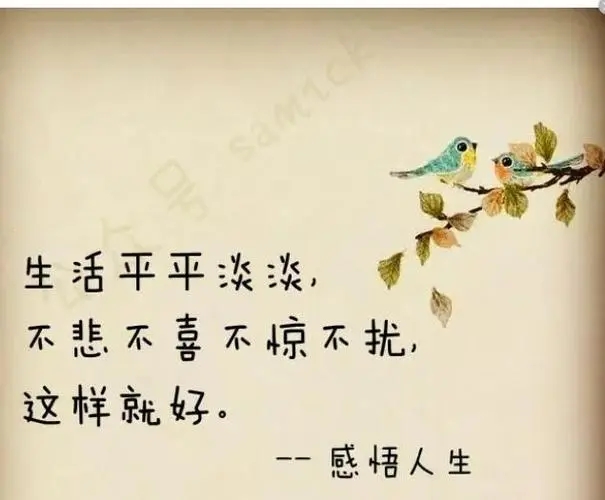 公众号 sam1ck
生活平平淡淡,
不悲不喜不惊不扰,
这样就好。
-- 感悟人生